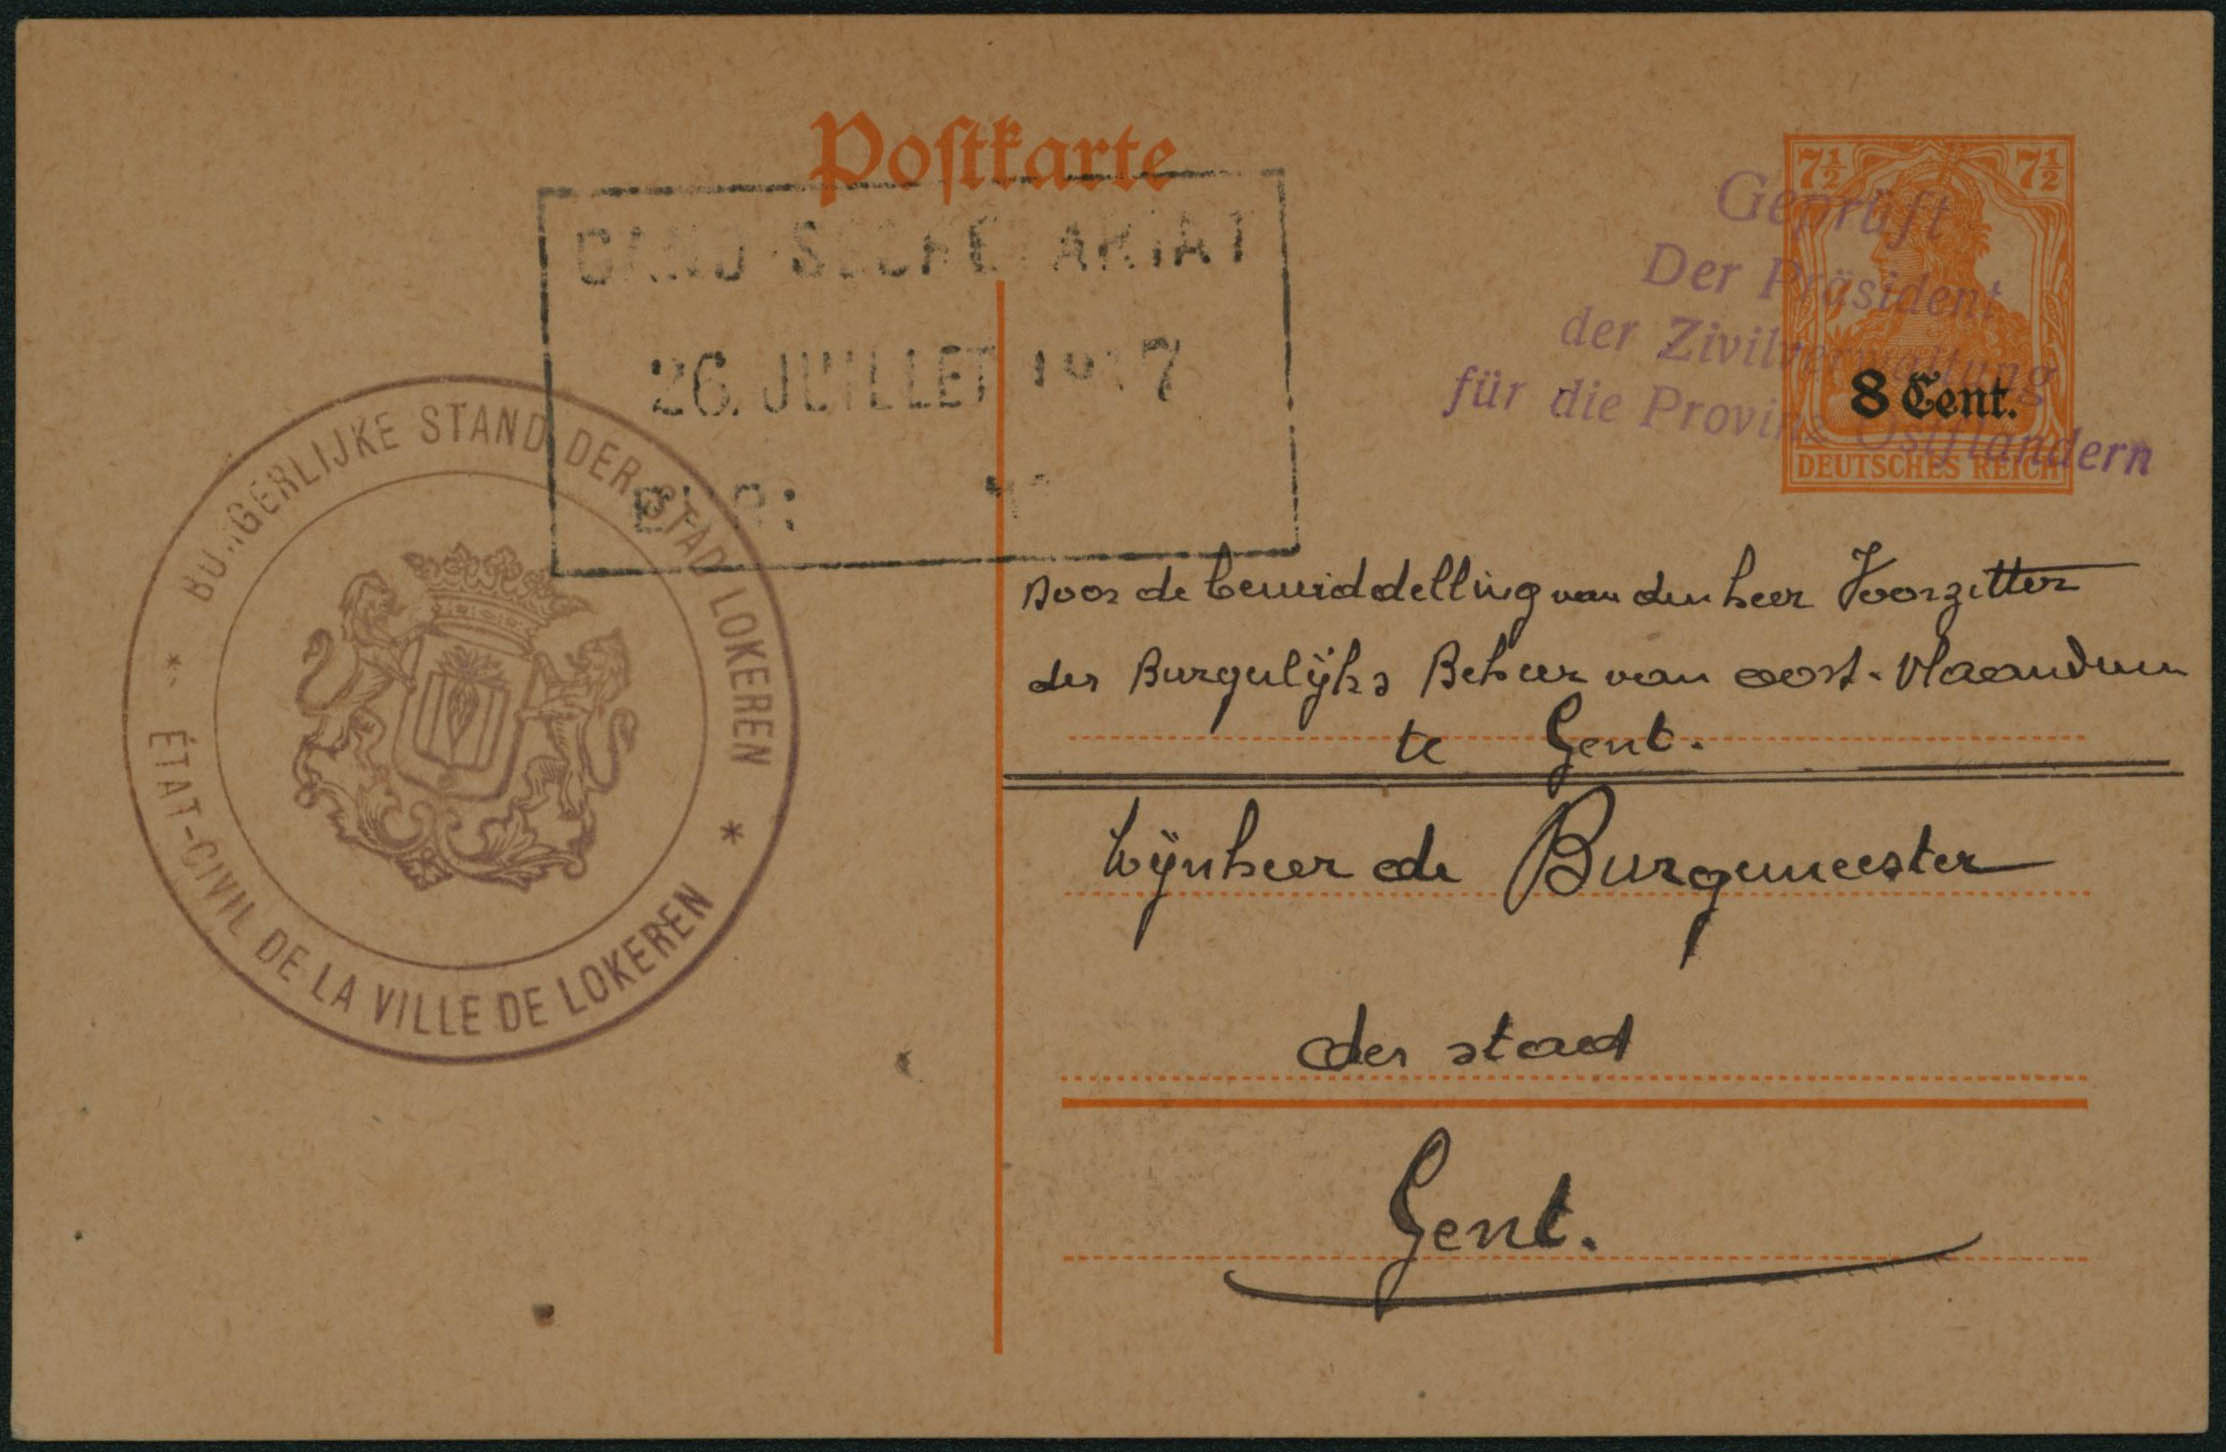 Postkarte
GAND SECRETARIAT
26. JUILLET 1917
7½ 7½
8 Cent.
DEUTSCHES REICH
Geprüft
Der Präsident
der Zivilverwaltung
für die Provinz Ostflandern
BURGERLIJKE STAND DER STAD LOKEREN
* ÉTAT-CIVIL DE LA VILLE DE LOKEREN *
Door de bemiddelling van den heer Voorzitter
der Burgerlijks Beheer van oost-Vlaanderen
te Gent.
Mijnheer de Burgemeester
der stad
Gent.